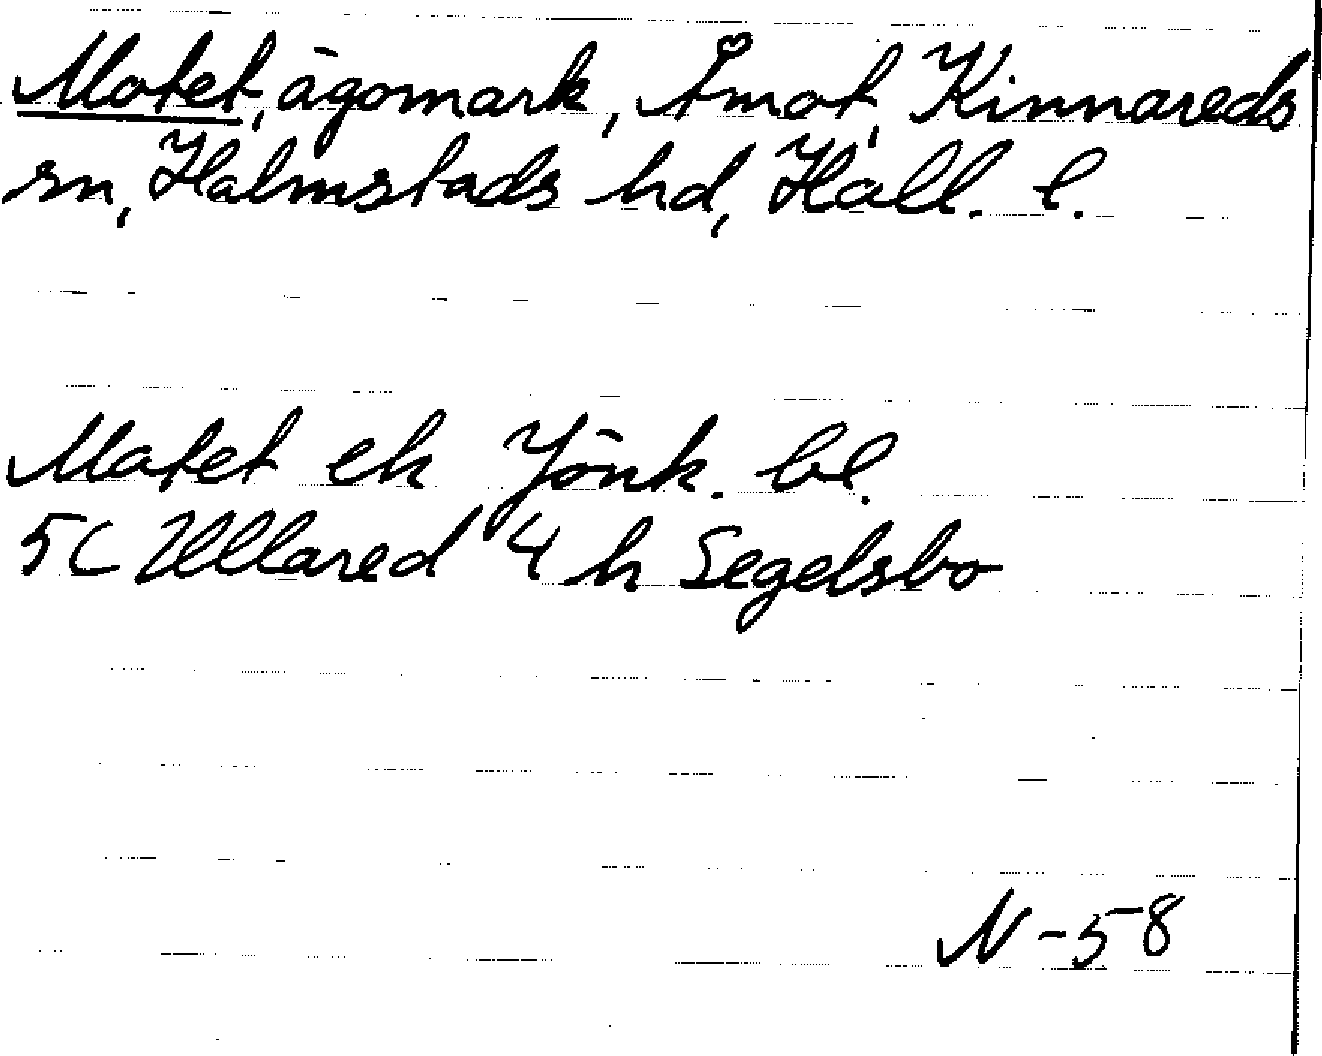 Motet, ägomark, Åmot, Kinnareds
sn, Halmstads hd, Hall. l.
Motet ek Jönk. bl.
5C Ullared 4 h Segelsbo
N-58